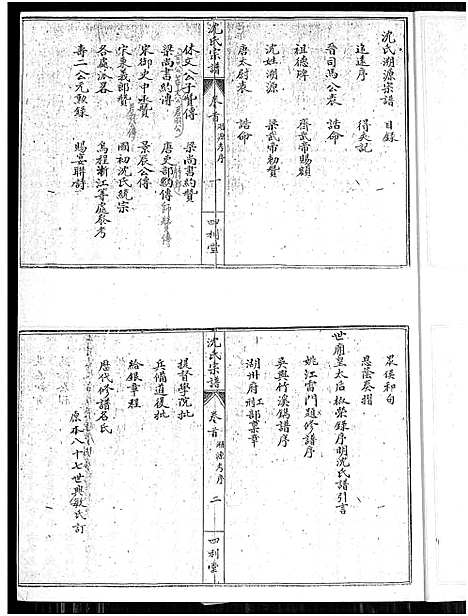 沈氏溯源宗譜 目錄
追遠序 得夾記
晉司馬公表 誥命
祖德碑 齋武帝賜額
沈姓溯源 梁武帝勅贊
唐太尉表 誥命
沈氏宗譜 卷首 溯源考序 一 四利堂
休文公子贊傳 梁尚書約贊
梁尚書約傳 唐吏部約傳 師蛙傳
宋御史中丞贊 景辰公傳
宋東義郎贊 國初沈氏統宗
各處派名 烏程浙江等處叅考
壽二公元勲錄 賜宴聯詩
眾侯和句
恩蔭宸摺
世廟皇太后椒榮錄序明沈氏譜引言
姚江雷門題修譜序
吳興竹溪鎢譜序
湖州府江部藁章
沈氏宗譜 卷首 溯源考序 二 四利堂
提督學院批
兵備道復批
給銀章程
歷代修譜名氏
原本八十七世興敏氏訂